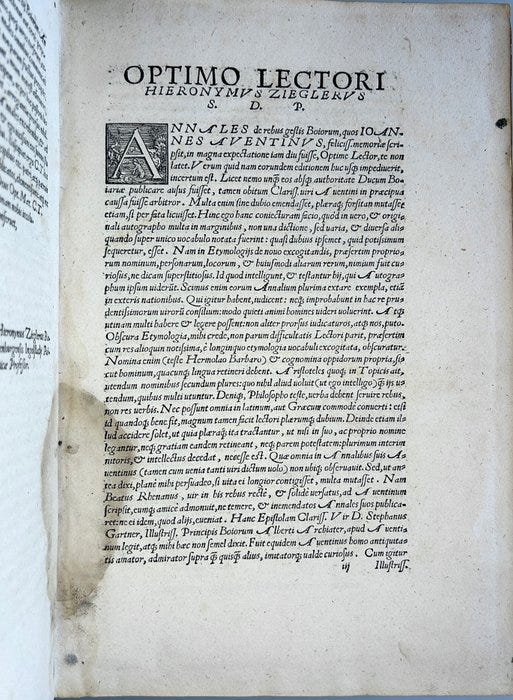 OPTIMO LECTORI
HIERONYMVS ZIEGLERVS
S. D. P.
ANNALES de rebus gestis Boiorum, quos IOAN-
NES AVENTINVS, feliciss. memoriæ scri-
psit, in magna expectatione iam diu fuisse, Optime Lector, te non
latet. Verum quid nam eorundem editionem huc usq; impediuerit,
incertum est. Licet nemo unq̃ eos absq; authoritate Ducum Bo-
iariæ publicare ausus fuisset, tamen obitum Clariss. uiri Auentini in præcipua
caussa fuisse arbitror. Multa enim sine dubio emendasset, plæraq; forsitan mutasset
etiam, si per fata licuisset. Hinc ego hanc coniecturam facio, quòd in uero, & origi-
nali autographo multa in marginibus, non una dictione, sed uaria, & diuersa ali-
quando super unico uocabulo notata fuerint: quasi dubius ipsemet, quid potissimum
sequeretur, esset. Nam in Etymologijs de nouo excogitandis, præsertim proprio-
rum nominum, personarum, locorum, & huiusmodi aliarum rerum, nimium fuit cu-
riosus, ne dicam superstitiosus. Id quod intelligunt, & testantur hij, qui Autogra-
phum ipsum uiderũt. Scimus enim eorum Annalium plurima extare exempla, etiã
in exteris nationibus. Qui igitur habent, iudicent: neq; improbabunt in hac re pru-
dentissimorum uirorũ consilium: modo quieti animi homines uideri uoluerint. Atq;
utinam multi habere & legere possent: non aliter prorsus iudicaturos, atq; nos, puto.
Obscura Etymologia, mihi crede, non parum difficultatis Lectori parit, præsertim
cum res alioquin notissima, è longinquo etymologia uocabuli excogitata, obscuratur.
Nomina enim (teste Hermolao Barbaro) & cognomina oppidorum propria, si-
cut hominum, quacunq; lingua retineri debent. Aristoteles quoq; in Topicis ait,
utendum nominibus secundum plures: quo nihil aliud uoluit (ut ego intelligo) q̃ ijs u-
tendum, quibus multi utuntur. Deniq; Philosopho teste, uerba debent seruire rebus,
non res uerbis. Nec possunt omnia in latinum, aut Græcum commodè conuerti: etsi
id quandoq; bene fit, magnum tamen facit lectori plærumq; dubium. Deinde etiam il-
lud accidere solet, ut quia plæraq; ita tractantur, ut nisi in suo, ac proprio nomine
legantur, neq; gratiam eandem retineant, neq; parem potestatem: plurimum interim
nitoris, & intellectus decedat, necesse est. Quæ omnia in Annalibus suis A-
uentinus (tamen cum uenia tanti uiri dictum uolo) non ubiq; obseruauit. Sed, ut an-
tea dixi, planè mihi persuadeo, si uita ei longior contigisset, multa mutasset. Nam
Beatus Rhenanus, uir in his rebus rectè, & solidè uersatus, ad Auentinum
scripsit, eumq; amicè admonuit, ne temerè, & inemendatos Annales suos publica-
ret: ne ei idem, quod alijs, eueniat. Hanc Epistolam Clariss. Vir D. Stephanus
Gartner, Illustriss. Principis Boiorum Alberti Archiater, apud Auenti-
num legit, atq; mihi hæc non semel dixit. Fuit equidem Auentinus homo antiquita-
tis amator, admirator supra q̃ quisq̃ alius, imitatorq; ualde curiosus. Cum igitur
iij Illustriss.